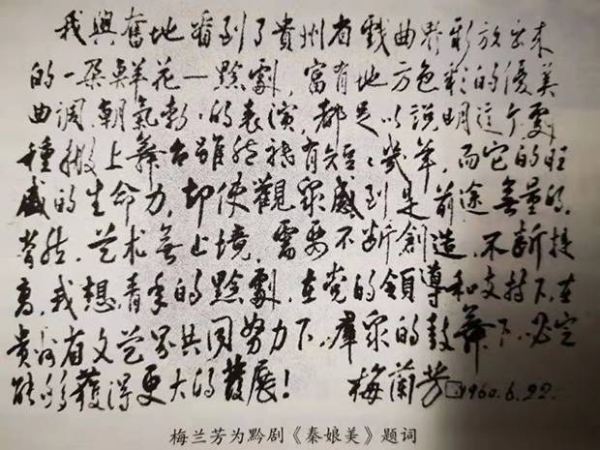 我興奮地看到了貴州省戲曲界新放出来
的一朵鮮花—黔劇,富有地方色彩的優美
曲調,朝氣勃〻的表演,都足以說明这个劇
種搬上舞台雖然祗有短〻幾年,而它的旺
盛的生命力,却使觀眾感到是前途無量的,
當然,艺术無止境,需要不断創造,不断提
高,我想,青年的黔劇,在党的領導和支持下,在
貴州省文艺界共同努力下,羣眾的鼓舞下,必定
能够獲得更大的發展! 梅蘭芳 1960.6.22.
梅兰芳为黔剧《秦娘美》题词